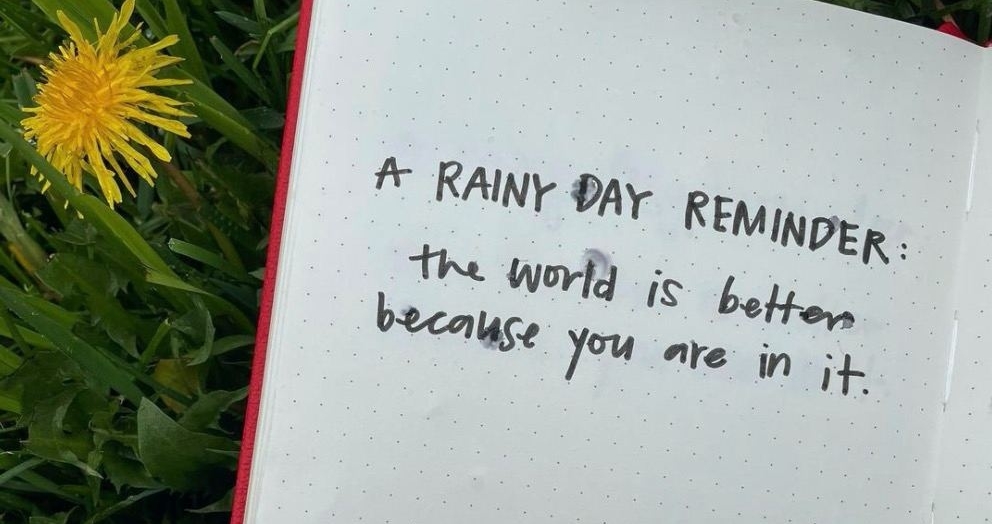 A RAINY DAY REMINDER:
the world is better
because you are in it.